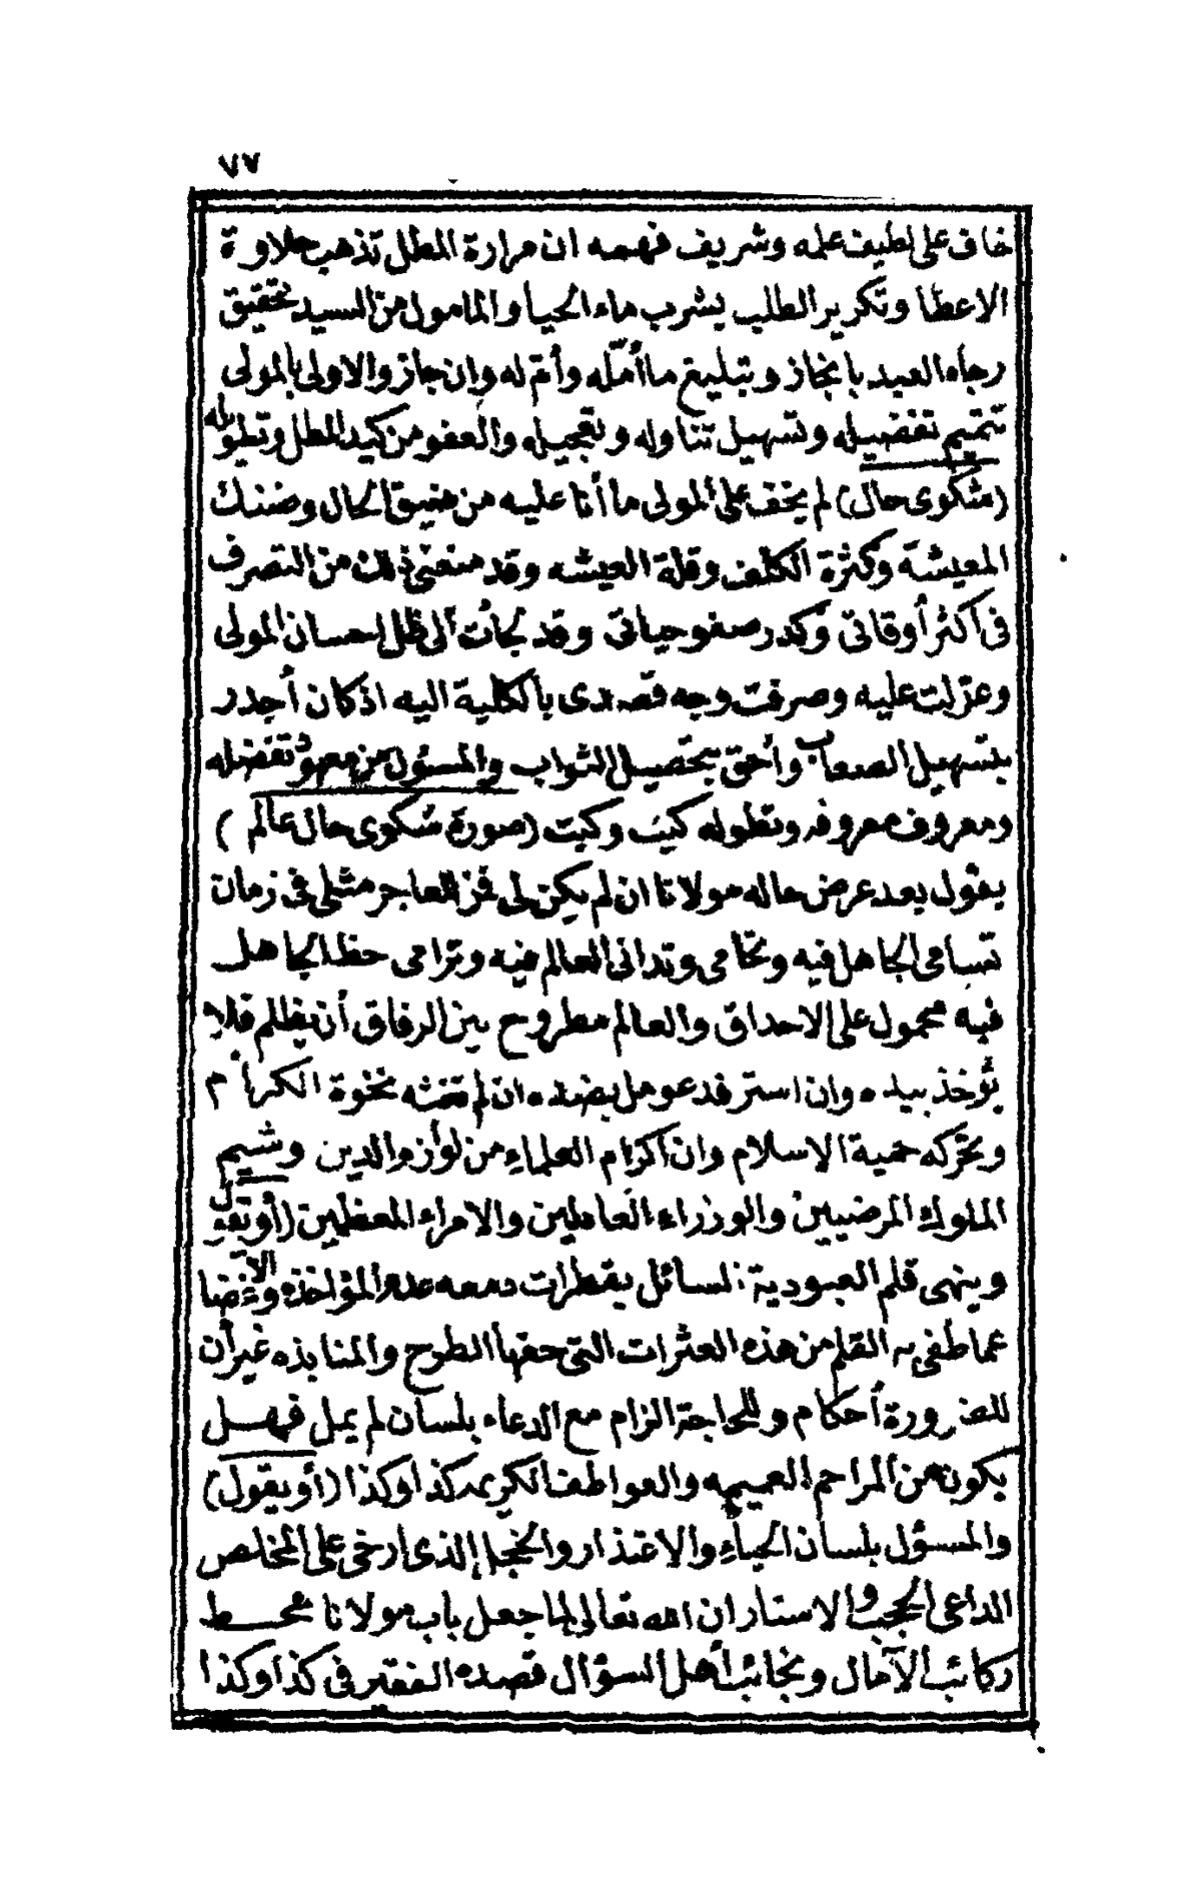 ٧٧
خاف على لطيف علمه وشريف فهمه ان مرارة المطل تذهب حلاوة
الاعطا وتكرير الطلب يشرب ماء الحيا والمامول من السيد تحقيق
رجاء العبد بانجاز وتبليغ ما أمّله وأتم له وان جاز والاولى بالمولى
تتميم تفضيله وتسهيل تناوله وتعجيله والعفو من كيد المطل وتطويله
(شكوى حال) لم يخف على المولى ما أنا عليه من ضيق الحال وضنك
المعيشة وكثرة الكلف وقلة العيشه وقد منعنى ذلك من التصرف
فى اكثر أوقاتى وكدر صفو حياتى وقد لجأت الى ظل احسان المولى
وعولت عليه وصرفت وجه قصدى بالكلية اليه اذ كان أجدر
بتسهيل الصعاب وأحق بتحصيل الثواب والمسؤل من معهود تفضله
ومعروف معروفه وتطوله كيت وكيت (صورة شكوى حال عالم)
يقول بعد عرض حاله مولانا ان لم يكن لى فمن للعاجز مثلى فى زمان
تسامى الجاهل فيه وتحامى وتدانى العالم فيه وترامى حظ الجاهل
فيه محمول على الاحداق والعالم مطروح بين الرفاق أن يظلم فلا
يؤخذ بيده وان استرفد عومل بضده ان لم تغثه نخوة الكرام
وتحركه حمية الاسلام وان اكرام العلماء من لوازم الدين وشيم
الملوك المرضيين والوزراء العاملين والامراء المعظمين (أو يقول
وينهى قلم العبودية السائل بقطرات دمعه عدم المؤاخذه والاغضا
عما طغى به القلم من هذه العثرات التى حقها الطرح والمنابذه غير أن
للضرورة أحكام وللحاجة الزام مع الدعاء بلسان لم يمل فهل
يكون من المراحم العميمه والعواطف الكريمه كذا وكذا (أو يقول)
والمسؤل بلسان الحياء والاعتذار والخجل الذى ارخى على المخلص
الداعى الحجب والاستار ان الله تعالى لما جعل باب مولانا محط
ركائب الآمال ونجائب أهل السؤال قصده الفقير فى كذا وكذا